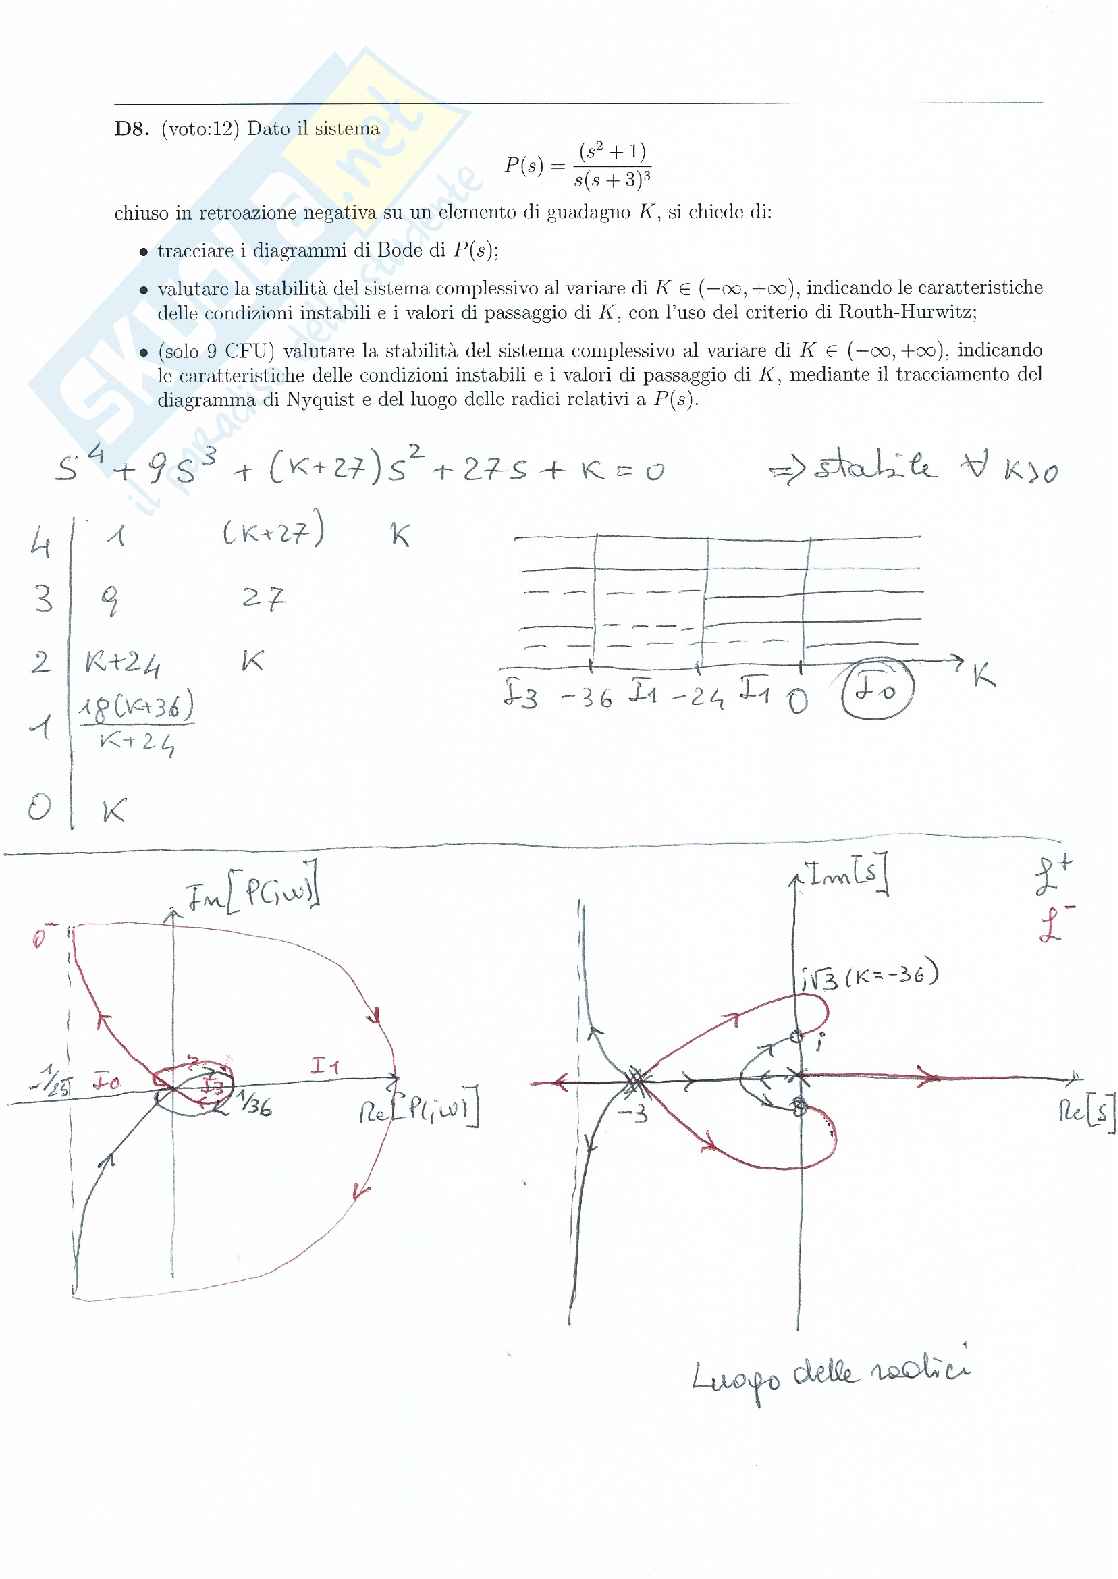 SKUOLA.net
il paradiso dello studente
D8. (voto:12) Dato il sistema
P(s) = (s² + 1) / s(s + 3)³
chiuso in retroazione negativa su un elemento di guadagno K, si chiede di:
• tracciare i diagrammi di Bode di P(s);
• valutare la stabilità del sistema complessivo al variare di K ∈ (−∞, +∞), indicando le caratteristiche
delle condizioni instabili e i valori di passaggio di K, con l'uso del criterio di Routh-Hurwitz;
• (solo 9 CFU) valutare la stabilità del sistema complessivo al variare di K ∈ (−∞, +∞), indicando
le caratteristiche delle condizioni instabili e i valori di passaggio di K, mediante il tracciamento del
diagramma di Nyquist e del luogo delle radici relativi a P(s).
s⁴ + 9s³ + (K+27)s² + 27s + K = 0 => stabile ∀ K>0
4 | 1 (K+27) K
3 | 9 27
2 | K+24 K
1 | 18(K+36) / K+24
0 | K
I3 -36 I1 -24 I1 0 I0 K
Im[P(jw)]
0⁻
-1/25 I0 I3 1/36 I1
Re[P(jw)]
Im[s]
L⁺
L⁻
j√3 (K=-36)
j
-3
Re[s]
Luogo delle radici